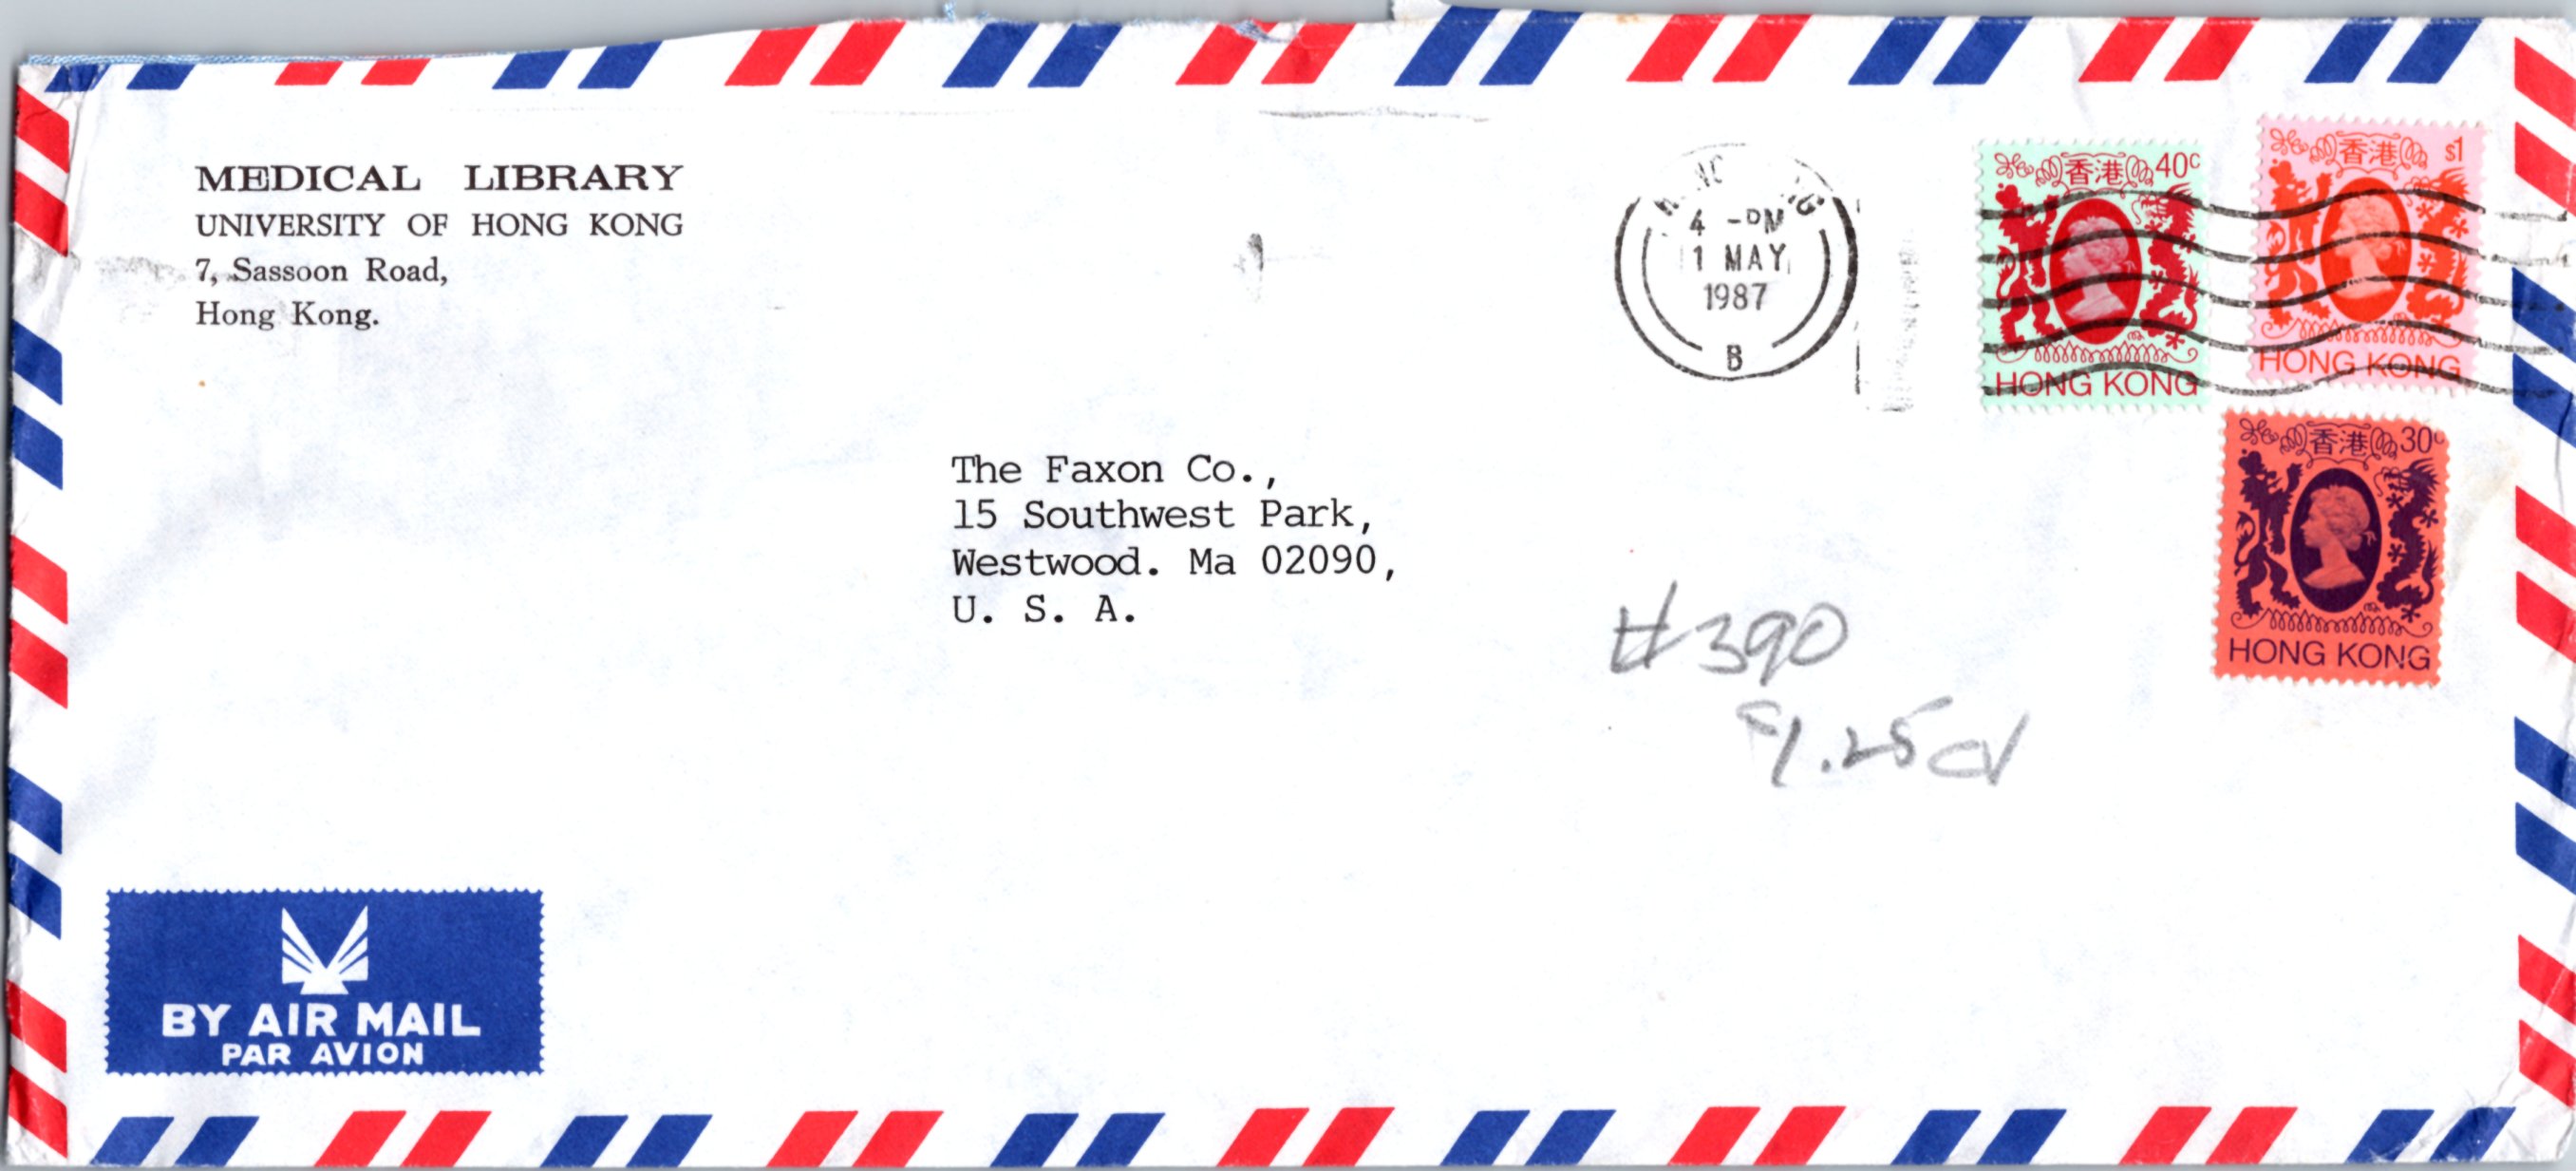 MEDICAL LIBRARY
UNIVERSITY OF HONG KONG
7, Sassoon Road,
Hong Kong.
4 -PM
1 MAY
1987
B
香港 40c
HONG KONG
香港 $1
HONG KONG
香港 30c
HONG KONG
The Faxon Co.,
15 Southwest Park,
Westwood. Ma 02090,
U. S. A.
#390
1.25 cv
BY AIR MAIL
PAR AVION